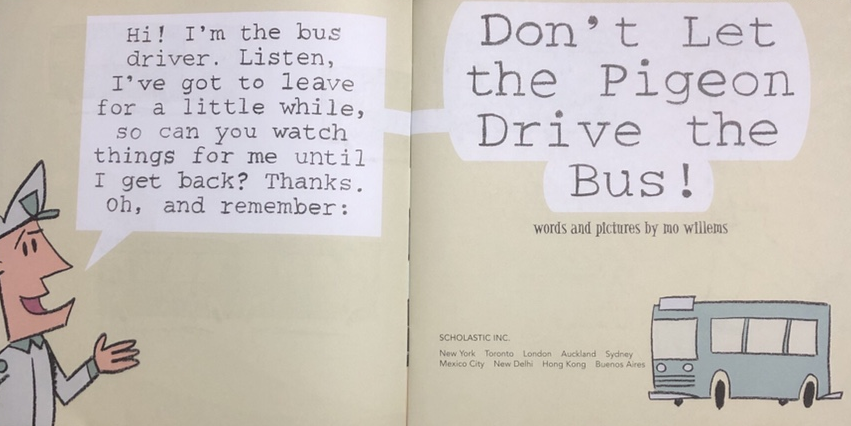 Hi! I'm the bus
driver. Listen,
I've got to leave
for a little while,
so can you watch
things for me until
I get back? Thanks.
Oh, and remember:
Don't Let
the Pigeon
Drive the
Bus!
words and pictures by mo willems
SCHOLASTIC INC.
New York Toronto London Auckland Sydney
Mexico City New Delhi Hong Kong Buenos Aires